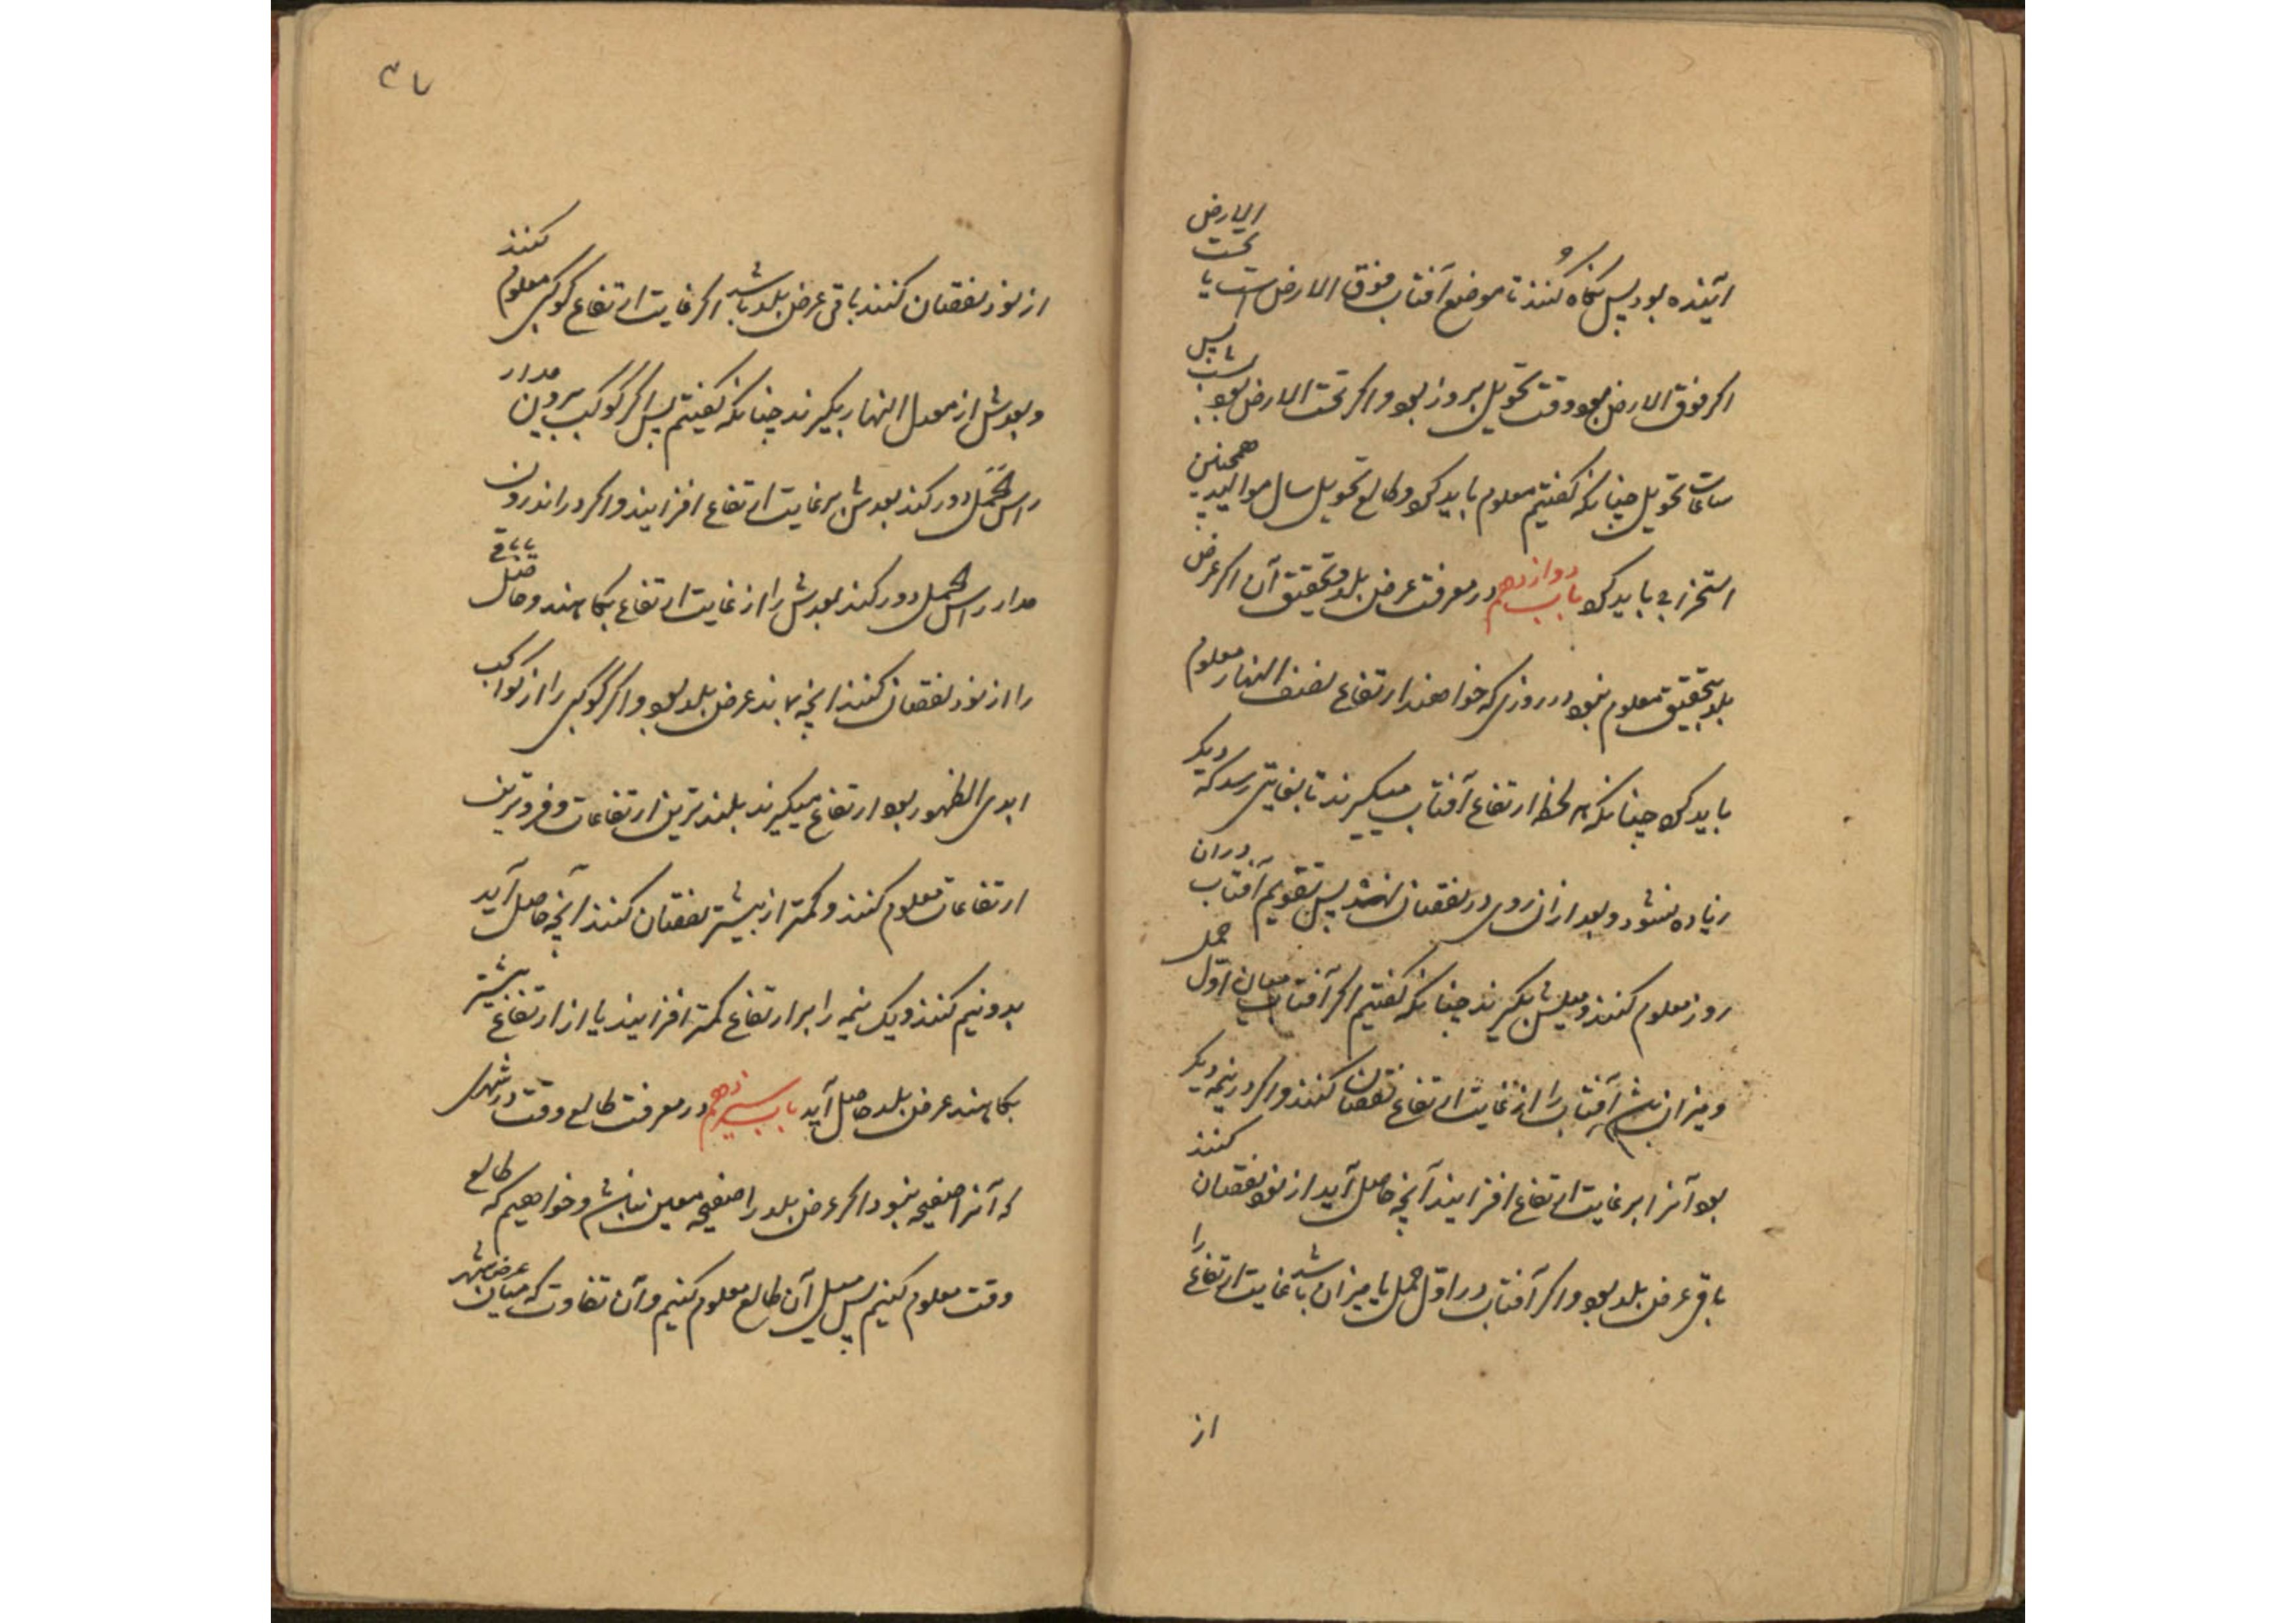 آینده بود پس نگاه کنند تا موضع آفتاب فوق الارض است یا تحت الارض
اکر فوق الارض بود وقت تحویل بروز بود و اکر تحت الارض بود بشب پس
ساعات تحویل چنانکه کفتیم معلوم باید کرد و طالع تحویل سال موالید همچنین
استخراج باید کرد باب دوازدهم در معرفت عرض بلد و تحقیق آن اکر عرض
بلد بتحقیق معلوم نبود در روزی که خواهند ارتفاع نصف النهار معلوم
باید کرد چنانکه هر لحظه ارتفاع آفتاب میکیرند تا بغایتی رسد که دیکر
زیاده نشود و بعد از آن روی در نقصان نهد پس تقویم آفتاب در آن
روز معلوم کنند و میلش بکیرند چنانکه کفتیم اکر آفتاب میان اول حمل
و میزان باشد آفتاب را از غایت ارتفاع نقصان کنند و اکر در نیمه دیکر
بود آنرا بر غایت ارتفاع افزایند آنچه حاصل آید از نود نقصان کنند
باقی عرض بلد بود و اکر آفتاب در اول حمل یا میزان باشد غایت ارتفاع را
از
از نود نقصان کنند باقی عرض بلد باشد اکر غایت ارتفاع کوکبی معلوم کنند
و بعدش از معدل النهار بکیرند چنانکه کفتیم پس اکر کوکب بیرون مدار
راس الحمل دور کند بعدش بر غایت ارتفاع افزایند و اکر در اندرون
مدار راس الحمل دور کند بعدش را از غایت ارتفاع بکاهند و حاصل
را از نود نقصان کنند آنچه بماند عرض بلد بود و اکر کوکبی را از کواکب
ابدی الظهور بود ارتفاع میکیرند بلندترین ارتفاعات و فروترین
ارتفاعات معلوم کنند و کمتر از بیشتر نقصان کنند آنچه حاصل آید
بدو نیم کنند و یک نیمه را بر ارتفاع کمتر افزایند یا از ارتفاع بیشتر
بکاهند عرض بلد حاصل آید باب سیزدهم در معرفت طالع وقت در شهری
که آنرا صفیحه نبود اکر عرض بلد را صفیحه معین نباشد و خواهیم که طالع
وقت معلوم کنیم پس میل آن طالع معلوم کنیم و آن تفاوت که میان عرض شهر